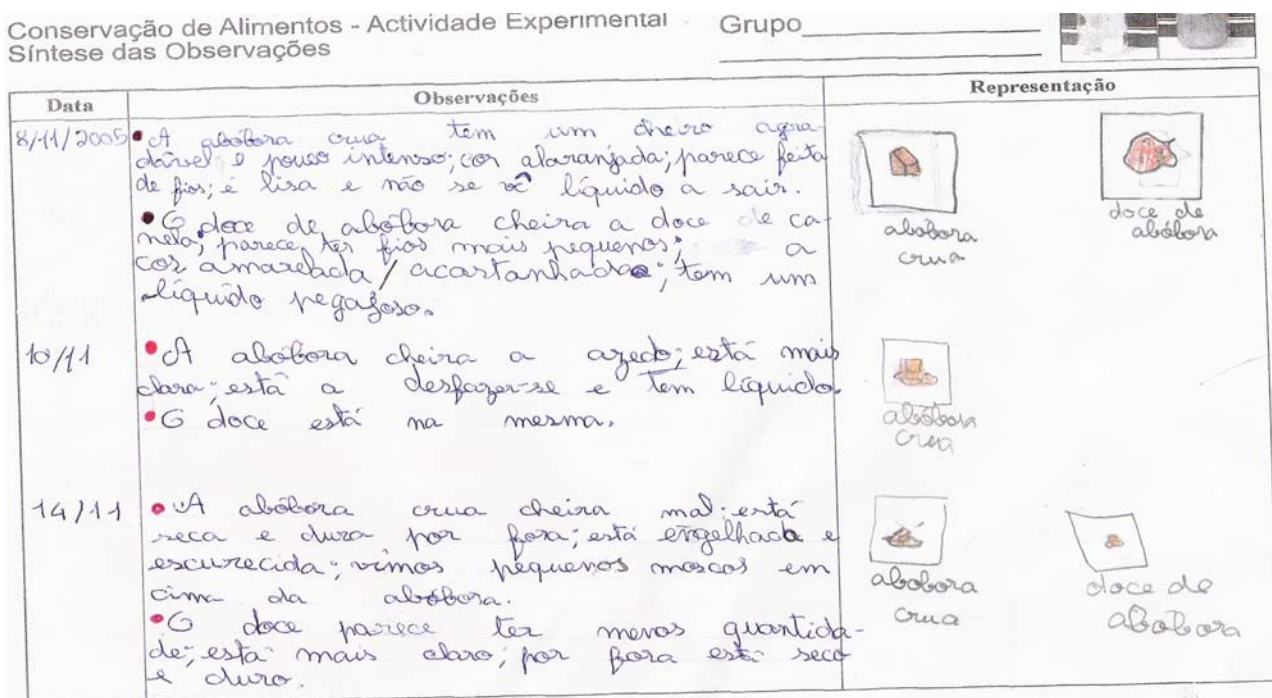 Conservação de Alimentos - Actividade Experimental
Síntese das Observações
Grupo
Data
Observações
Representação
8/11/2005
• A abóbora crua tem um cheiro agra-
dável e pouco intenso; cor alaranjada; parece feita
de fios; é lisa e não se vê líquido a sair.
• O doce de abóbora cheira a doce de ca-
nela; parece ter fios mais pequenos; a
cor amarelada / acastanhada; tem um
líquido pegajoso.
abobora
crua
doce de
abóbora
10/11
• A abóbora cheira a azedo; está mais
clara; está a desfazer-se e tem líquido.
• O doce está na mesma.
abóbora
crua
14/11
• A abóbora crua cheira mal; está
seca e dura por fora; está engelhada e
escurecida; vimos pequenos moscos em
cima da abóbora.
• O doce parece ter menos quantida-
de; está mais claro; por fora está seco
e duro.
abobora
crua
doce de
abobora